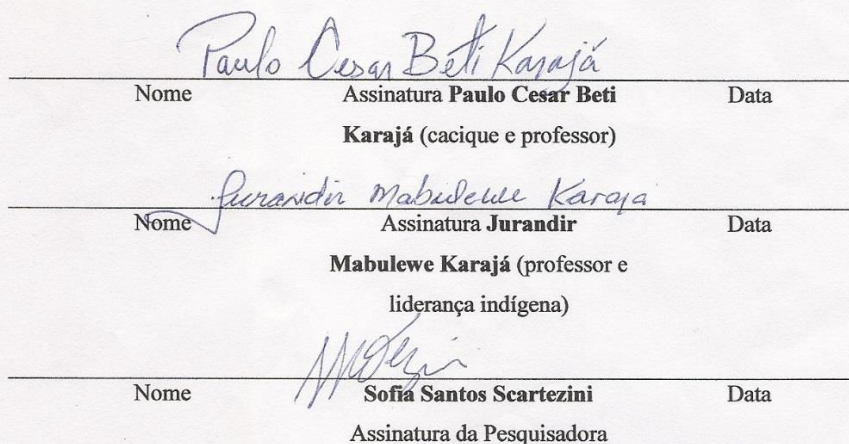 Paulo Cesar Beti Karajá
Nome Assinatura Paulo Cesar Beti Data
Karajá (cacique e professor)
Jurandir Mabulewe Karaja
Nome Assinatura Jurandir Data
Mabulewe Karajá (professor e
liderança indígena)
Nome Sofia Santos Scartezini Data
Assinatura da Pesquisadora